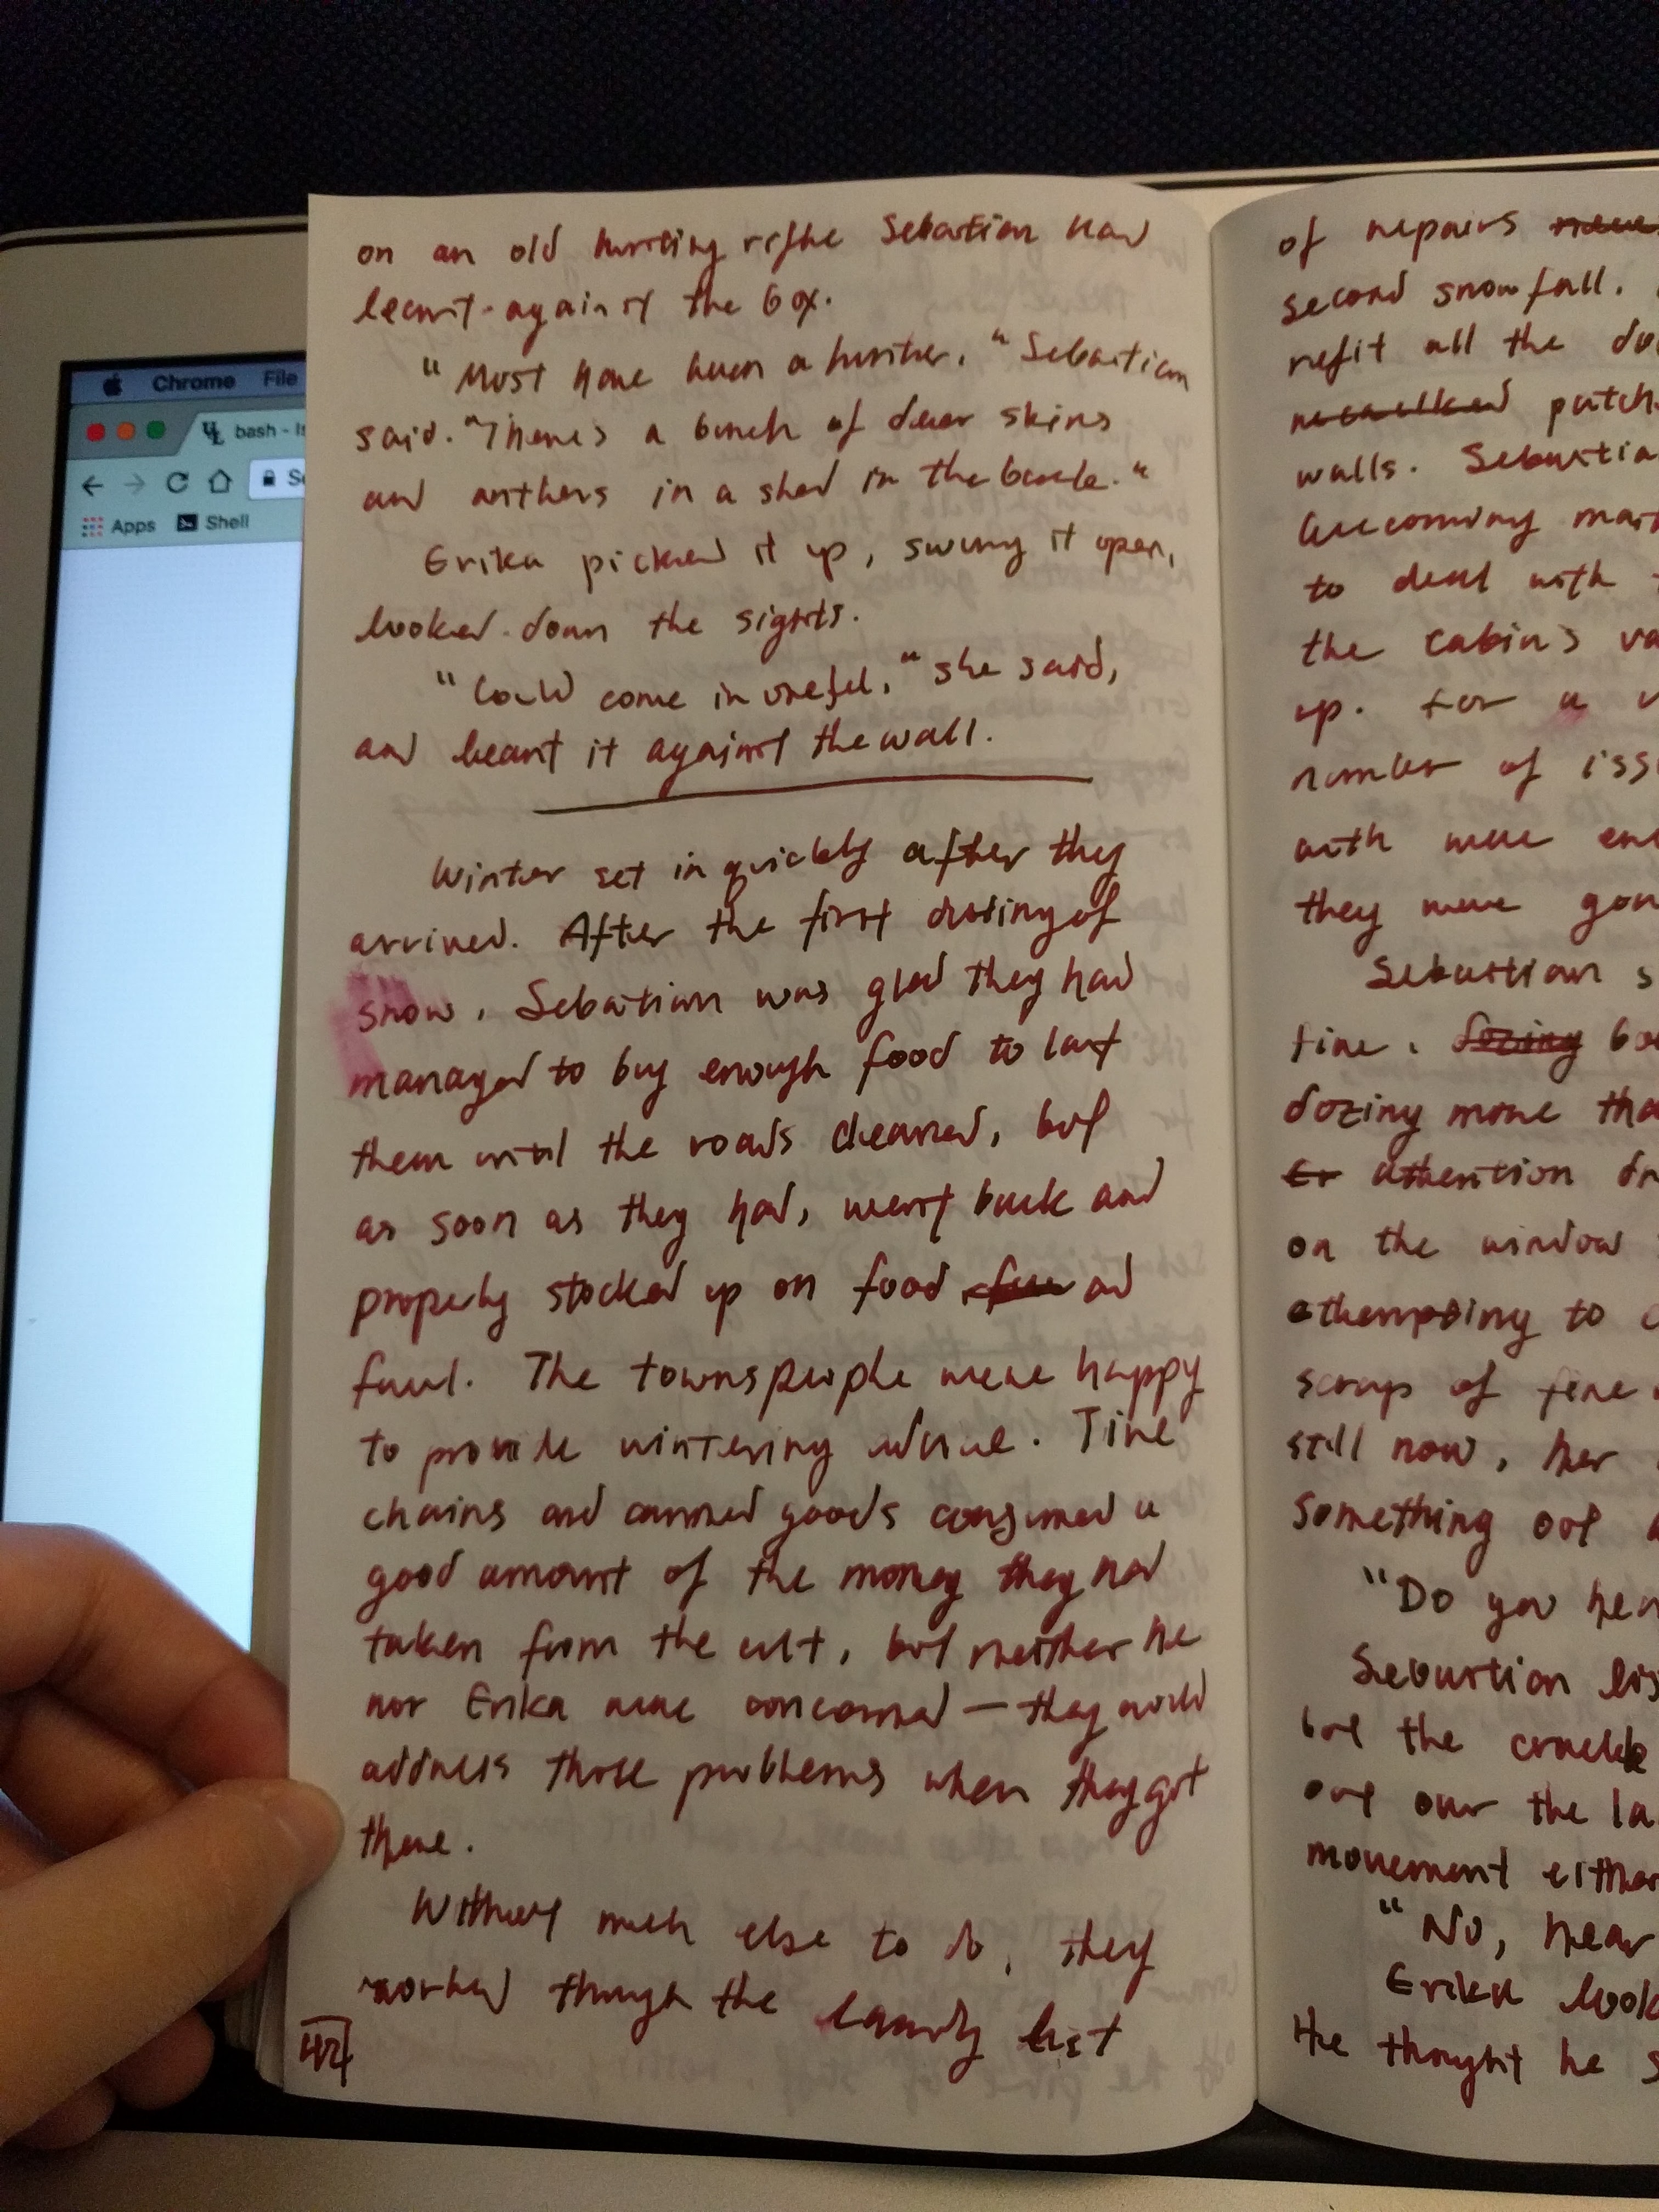 Chrome File
bash - Is
Apps Shell
on an old hunting rifle Sebastian had
leant against the box.
"Must have been a hunter," Sebastian
said. "There's a bunch of deer skins
and antlers in a shed in the back."
Erika picked it up, swung it open,
looked down the sights.
"Could come in useful," she said,
and leant it against the wall.
Winter set in quickly after they
arrived. After the first dusting of
snow, Sebastian was glad they had
managed to buy enough food to last
them until the roads cleared, but
as soon as they had, went back and
properly stocked up on food ad
fuel. The townspeople were happy
to provide wintering advice. Tire
chains and canned goods consumed a
good amount of the money they had
taken from the cult, but neither he
nor Erika were concerned — they would
address those problems when they got
there.
Without much else to do, they
worked through the laundry list
42
of repairs
second snowfall.
refit all the
patch
walls. Sebastia
becoming
to deal with
the cabin's
up. For a
number of iss
with were
they were
Sebastian s
fire,
dozing more tha
attention
on the window
attempting to
scraps of
still now, her
something out
"Do you hea
Sebastian lis
but the crackle
out over the la
movement either
"No, hear
Erika look
He thought he s